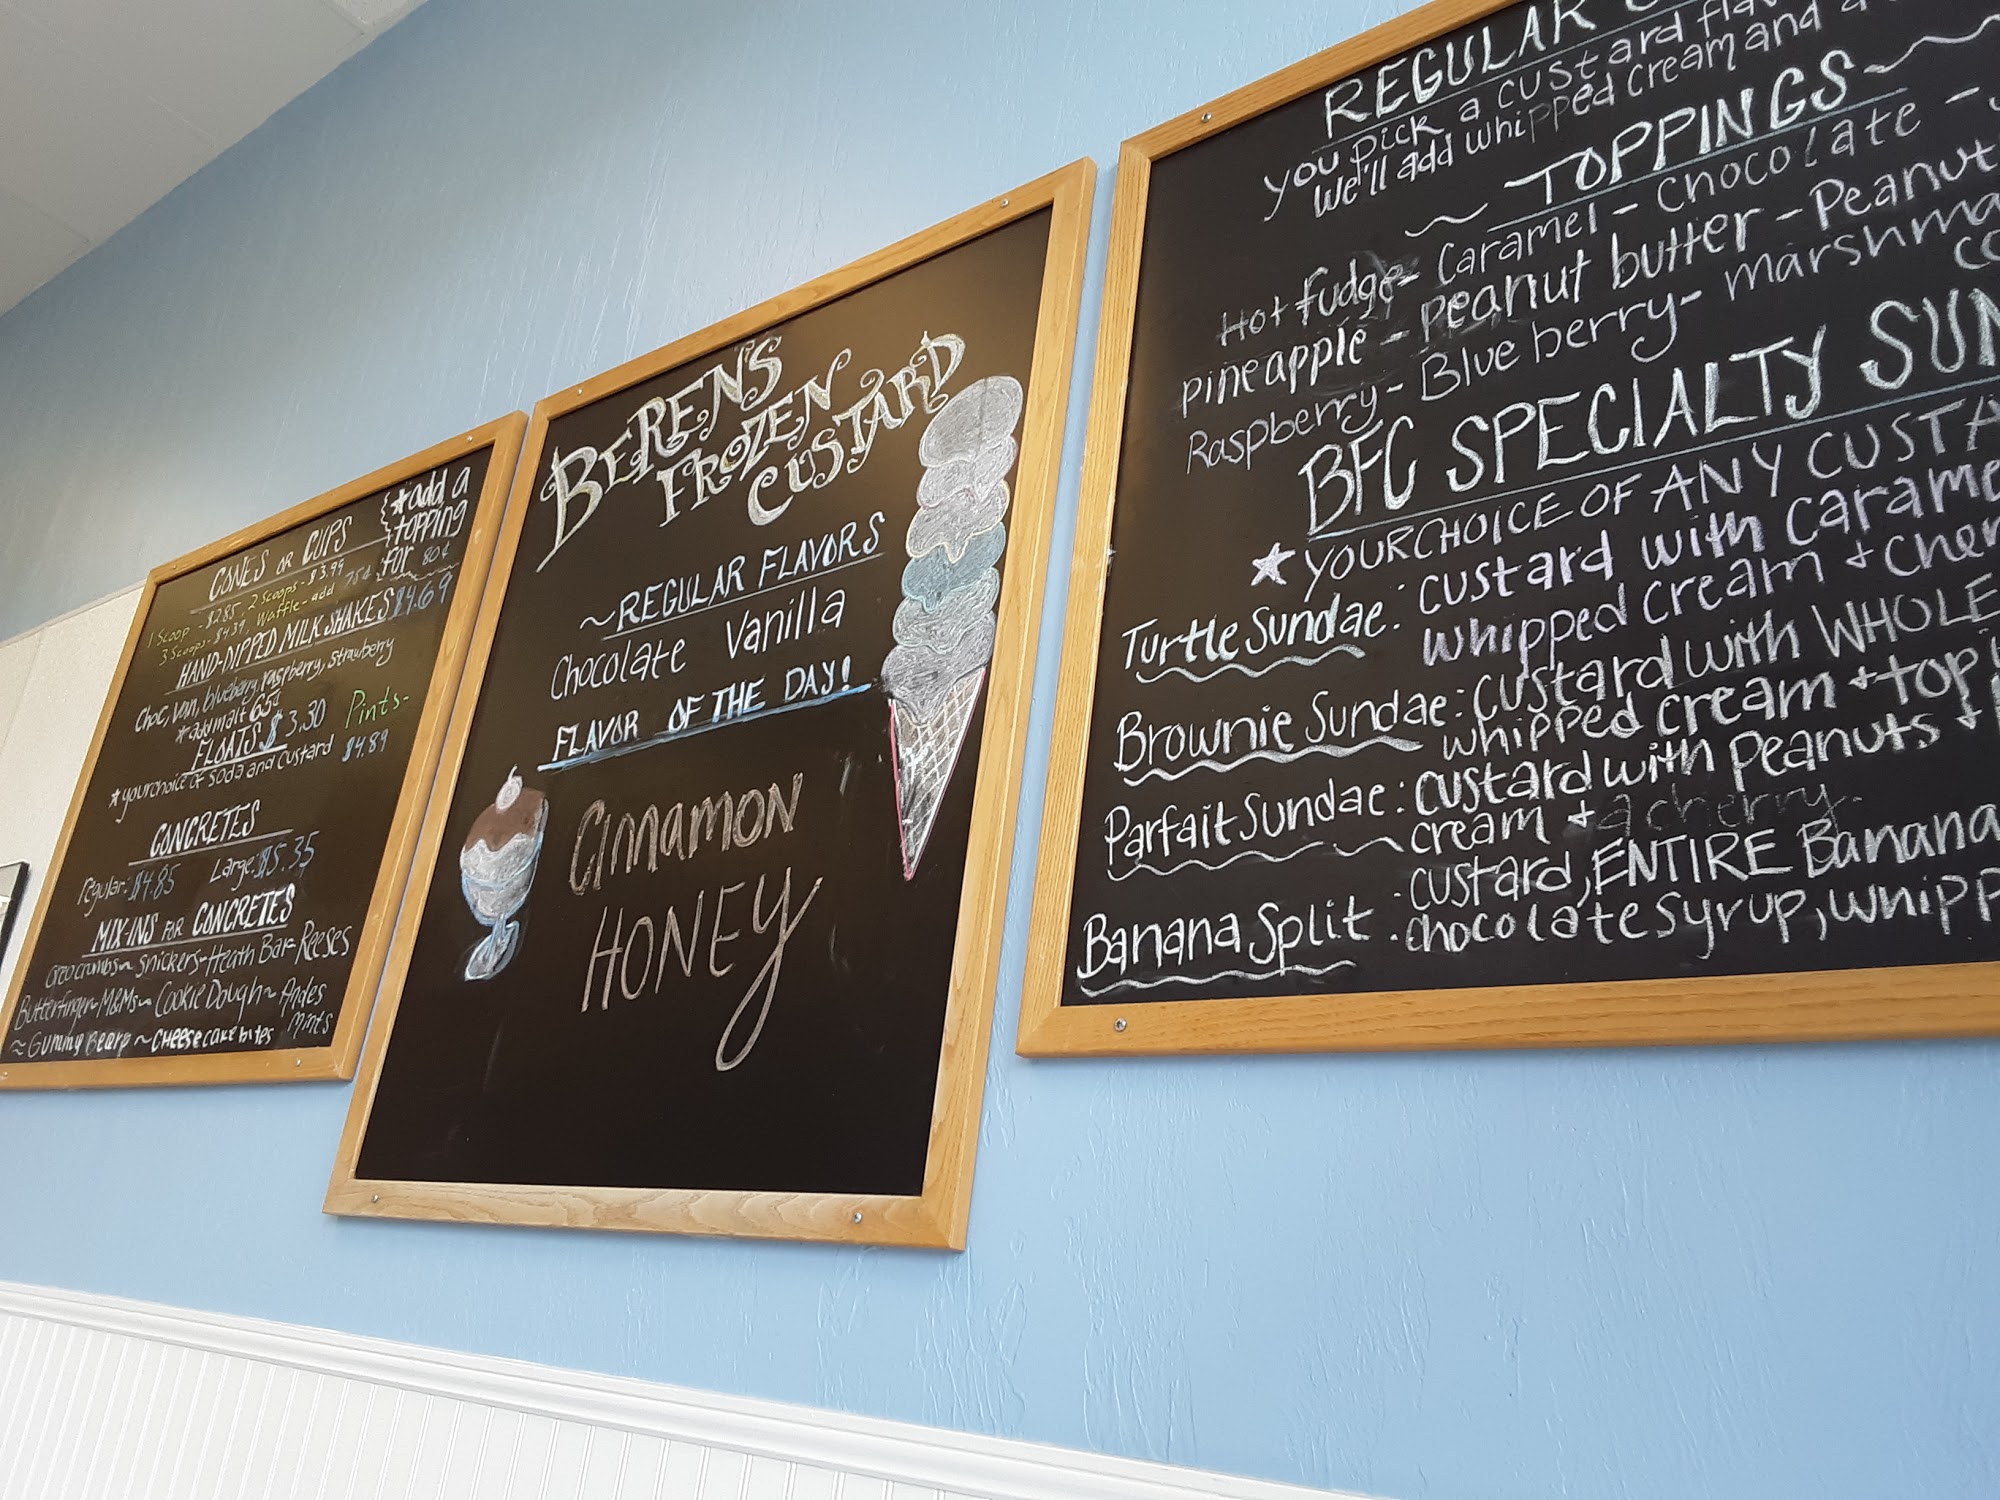 CONES OR CUPS
1 Scoop - $2.85, 2 Scoops - $3.99
3 Scoops - $4.39, Waffle - add 75¢
*add a
topping
for 80¢
HAND-DIPPED MILK SHAKES $4.69
Choc, van, blueberry, raspberry, strawberry
*add malt 65¢
FLOATS $3.30
*your choice of soda and custard
Pints-
$4.89
CONCRETES
Regular: $4.85 Large: $5.35
MIX-INS FOR CONCRETES
Oreo crumbs~ Snickers~ Heath Bar~ Reeses
Butterfinger~ M&Ms~ Cookie Dough~ Andes
Mints
~ Gummy Bears ~ Cheesecake bites
BEREN'S
FROZEN
CUSTARD
~REGULAR FLAVORS
Chocolate Vanilla
FLAVOR OF THE DAY!
Cinnamon
HONEY
REGULAR
you pick a custard
We'll add whipped cream and a
~ TOPPINGS ~
Hot fudge - Caramel - Chocolate -
pineapple - peanut butter - Peanut
Raspberry - Blueberry -
BFC SPECIALTY
★ YOUR CHOICE OF ANY
Turtle Sundae: custard with
whipped cream +
Brownie Sundae: custard with WHOLE
whipped cream +
Parfait Sundae: custard with peanuts +
cream + a cherry.
Banana Split: custard, ENTIRE Banana
chocolate syrup,